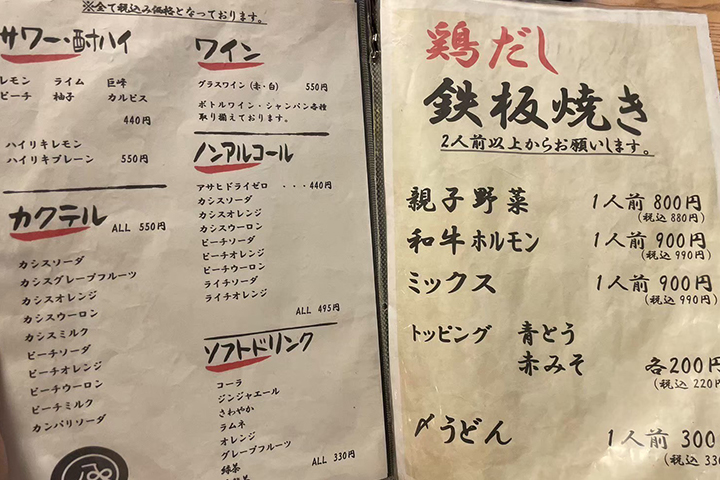 ※全て税込み価格となっております。
サワー・酎ハイ
レモン ライム 巨峰
ピーチ 柚子 カルピス
440円
ハイリキレモン
ハイリキプレーン 550円
カクテル ALL 550円
カシスソーダ
カシスグレープフルーツ
カシスオレンジ
カシスウーロン
カシスミルク
ピーチソーダ
ピーチオレンジ
ピーチウーロン
ピーチミルク
カンパリソーダ
ワイン
グラスワイン(赤・白) 550円
ボトルワイン・シャンパン各種
取り揃えております。
ノンアルコール
アサヒドライゼロ ・・・440円
カシスソーダ
カシスオレンジ
カシスウーロン
ピーチソーダ
ピーチオレンジ
ピーチウーロン
ライチソーダ
ライチオレンジ
ALL 495円
ソフトドリンク
コーラ
ジンジャエール
さわやか
ラムネ
オレンジ
グレープフルーツ
緑茶
ALL 330円
鶏だし
鉄板焼き
2人前以上からお願いします。
親子野菜 1人前 800円
(税込 880円)
和牛ホルモン 1人前 900円
(税込 990円)
ミックス 1人前 900円
(税込 990円)
トッピング 青とう
赤みそ 各200円
(税込 220円
〆うどん 1人前 300
(税込 33